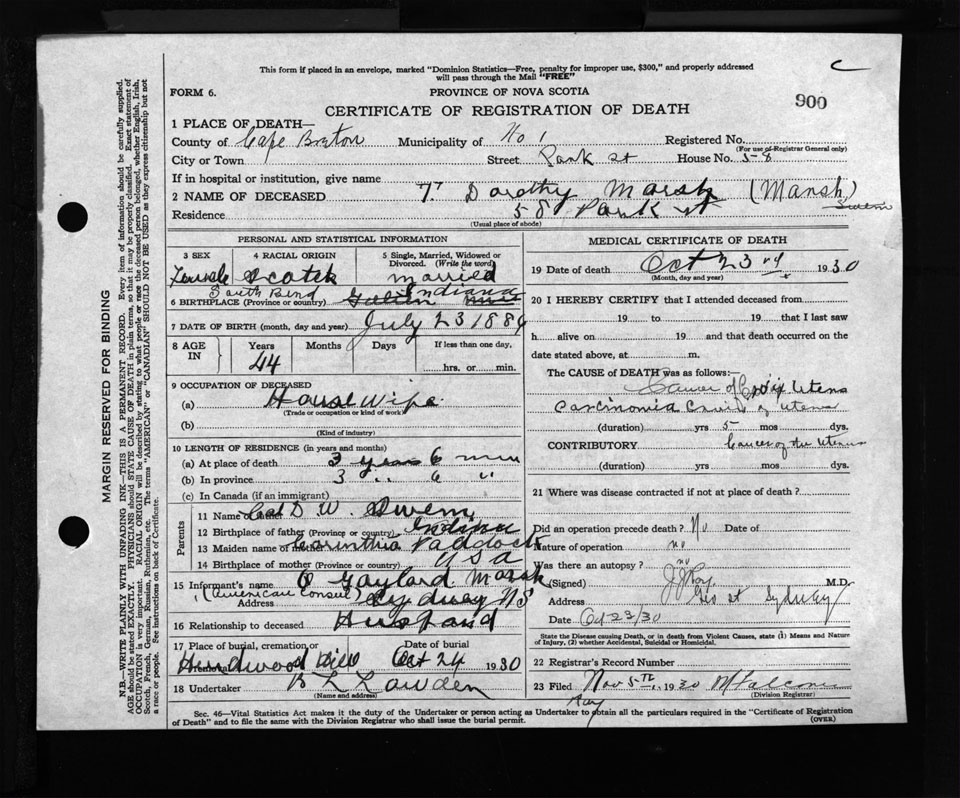 This form if placed in an envelope, marked "Dominion Statistics—Free, penalty for improper use, $300," and properly addressed
will pass through the Mail "FREE"
C
FORM 6.
PROVINCE OF NOVA SCOTIA
900
CERTIFICATE OF REGISTRATION OF DEATH
1 PLACE OF DEATH—
County of Cape Breton Municipality of No 1 Registered No.
(For use of Registrar General only)
City or Town Street Park st House No. 58
If in hospital or institution, give name
2 NAME OF DECEASED Dorothy Marsh (Marsh)
Swem
Residence 58 Park st
(Usual place of abode)
PERSONAL AND STATISTICAL INFORMATION
3 SEX 4 RACIAL ORIGIN 5 Single, Married, Widowed or
Divorced. (Write the word)
Female Scotch married
South Bend Indiana
6 BIRTHPLACE (Province or country)
7 DATE OF BIRTH (month, day and year) July 23 1886
8 AGE IN Years Months Days If less than one day,
44 hrs. or min.
9 OCCUPATION OF DECEASED
(a) House Wife
(Trade or occupation or kind of work)
(b)
(Kind of industry)
10 LENGTH OF RESIDENCE (in years and months)
(a) At place of death 3 years 6
(b) In province 3 " 6 "
(c) In Canada (if an immigrant)
Parents
11 Name of father D W. Swem
12 Birthplace of father (Province or country) Indiana
13 Maiden name of mother Corinthia Paddock
14 Birthplace of mother (Province or country) USA
15 Informant's name O Gaylord Marsh
(American Consul)
Address Sydney NS
16 Relationship to deceased Husband
17 Place of burial, cremation or Date of burial
Hardwood Hill Oct 24 1930
18 Undertaker
(Name and address)
MEDICAL CERTIFICATE OF DEATH
19 Date of death Oct 23 rd 1930
(Month, day and year)
20 I HEREBY CERTIFY that I attended deceased from
19 to 19 that I last saw
h alive on 19 and that death occurred on the
date stated above, at m.
The CAUSE OF DEATH was as follows:—
Cancer of Cervix Uterus
Carcinoma of uterus
(duration) yrs 5 mos dys.
CONTRIBUTORY Cancer of the Uterus
(duration) yrs mos dys.
21 Where was disease contracted if not at place of death?
Did an operation precede death? No Date of
Nature of operation no
Was there an autopsy? no
(Signed) M.D.
Address Geo st Sydney
Date Oct 23/30
State the Disease causing Death, or in death from Violent Causes, state (1) Means and Nature
of Injury, (2) whether Accidental, Suicidal or Homicidal.
22 Registrar's Record Number
23 Filed Nov 5th 1930
(Division Registrar)
Sec. 46—Vital Statistics Act makes it the duty of the Undertaker or person acting as Undertaker to obtain all the particulars required in the "Certificate of Registration
of Death" and to file the same with the Division Registrar who shall issue the burial permit.
(OVER)
MARGIN RESERVED FOR BINDING
N.B.—WRITE PLAINLY WITH UNFADING INK—THIS IS A PERMANENT RECORD. Every item of information should be carefully supplied.
AGE should be stated EXACTLY. PHYSICIANS should STATE CAUSE OF DEATH in plain terms, so that it may be properly classified. Exact statement of
OCCUPATION is very important. RACIAL ORIGIN will be described by stating to what people or race the deceased person belonged, whether English, Irish,
Scotch, French, German, Russian, Ruthenian, etc. The terms "AMERICAN" or "CANADIAN" SHOULD NOT BE USED as they express citizenship but not
a race or people. See instructions on back of Certificate.